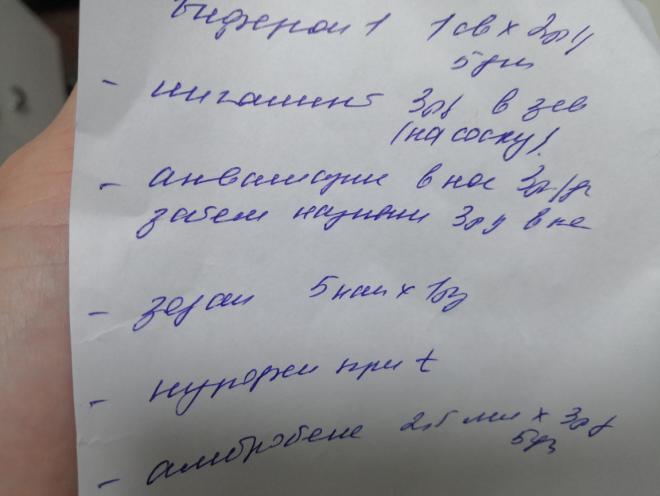 Виферон 1 1св х 2р/д
5 дн
- 3р/д в зев
(на соску)
- аквамарис в нос 3р/д
затем називин 3р/д в нос
- зодак 5 кап х 1р/д
- нурофен при t
- амбробене 2,5 мл х 3р/д
5 дн